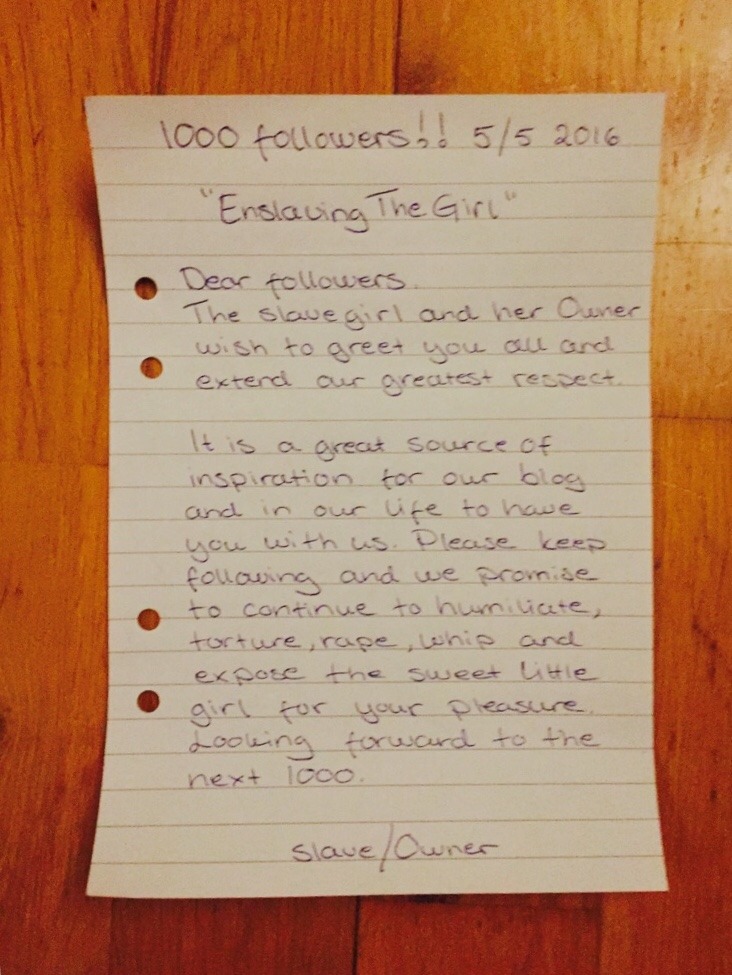 1000 followers!! 5/5 2016
"Enslaving The Girl"
Dear followers.
The slavegirl and her Owner
wish to greet you all and
extend our greatest respect.
It is a great source of
inspiration for our blog
and in our life to have
you with us. Please keep
following and we promise
to continue to humiliate,
torture, rape, whip and
expose the sweet little
girl for your pleasure.
Looking forward to the
next 1000.
slave/Owner